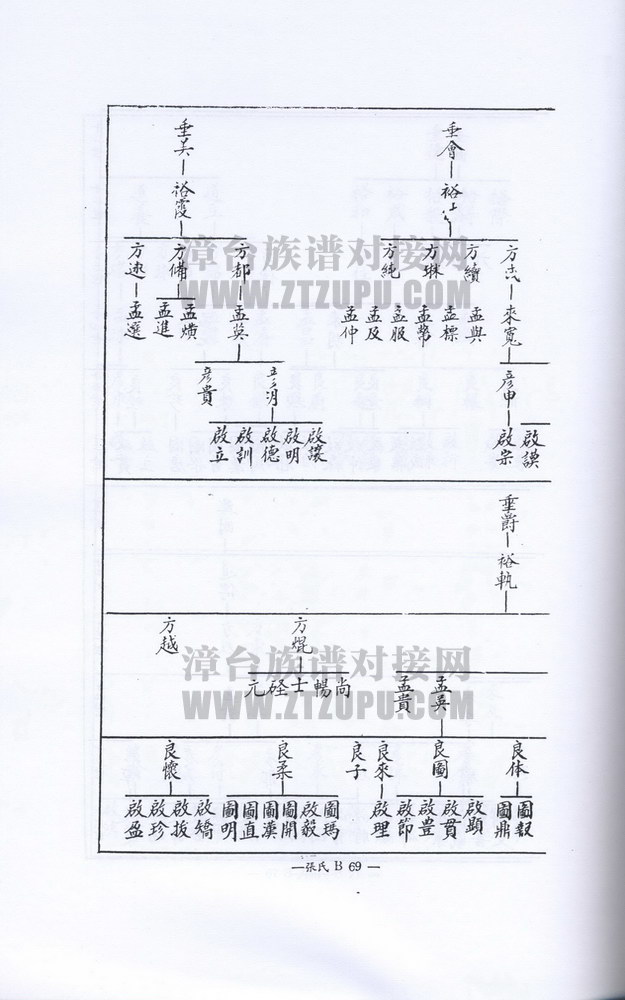 垂會
裕
方志
方續
方琳
方純
來寬
孟與
孟標
孟幣
孟服
孟及
孟仲
彥申
啟謨
啟宗
垂美
裕霞
方都
方備
方逑
孟英
孟熿
孟進
孟選
彥貴
啟讓
啟明
啟德
啟訓
啟立
垂爵
裕執
方焜
方越
孟英
孟貴
尚
暢
士
硁
元
良体
良圖
良來
良子
良柔
良懷
圖報
圖鼎
啟顯
啟貫
啟豊
啟節
啟理
圖瑪
啟毅
圖開
圖漢
圖直
圖明
啟矯
啟拔
啟珍
啟盈
漳台族谱对接网
WWW.ZTZUPU.COM
漳台族谱对接网
WWW.ZTZUPU.COM
—張氏 B 69 —